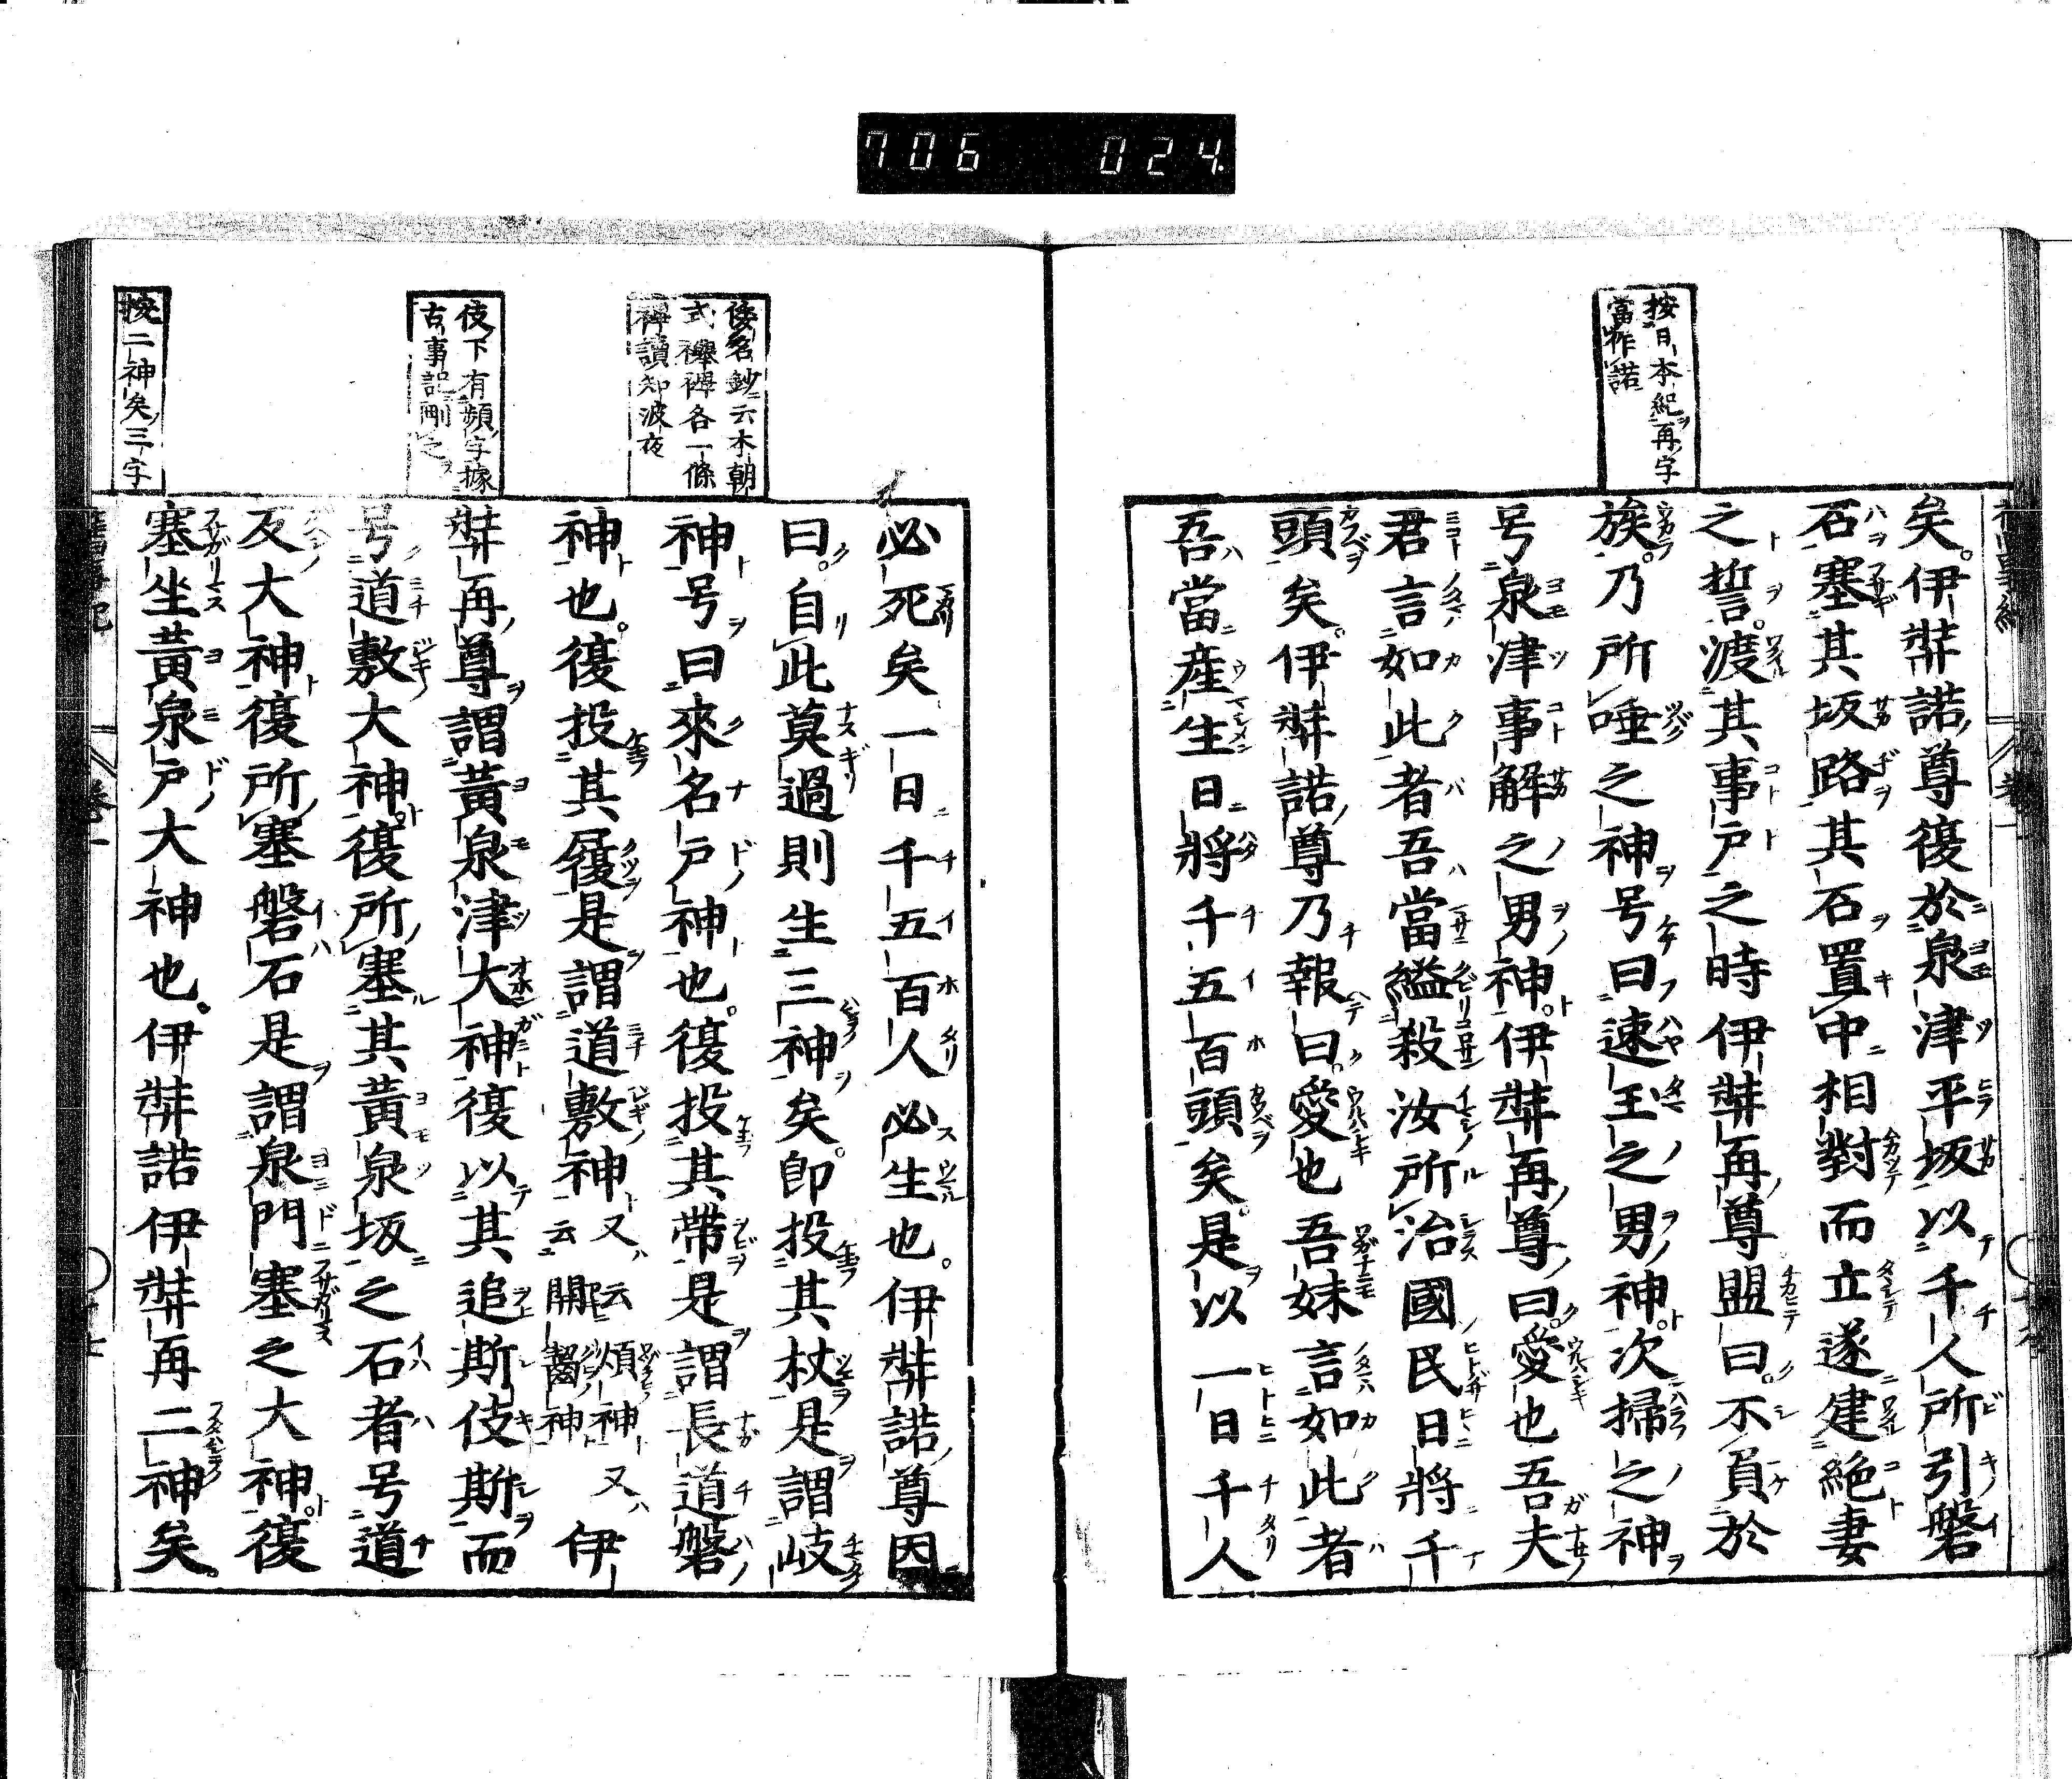 706 024
按日本紀再字
當作諾
矣。伊弉諾尊復於泉津平坂以千人所引磐
石塞其坂路其石置中相對而立遂建絶妻
之誓。渡其事戸之時伊弉再尊盟曰。不負於
族。乃所唾之神号曰速玉之男神。次掃之神
号泉津事解之男神。伊弉再尊曰。愛也吾夫
君言如此者吾當縊殺汝所治國民日將千
頭矣。伊弉諾尊乃報曰。愛也吾妹言如此者
吾當産生日將千五百頭矣。是以一日千人
倭名鈔云本朝
式襷襅各一條
襅讀知波夜
伎下有頻字據
古事記刪之
按二神矣三字
必死矣一日千五百人必生也。伊弉諾尊因
曰。自此莫過則生三神矣。即投其杖是謂岐
神号曰來名戸神也。復投其帯是謂長道磐
神也。復投其履是謂道敷神又云煩神又云開齧神又伊
弉再尊謂黄泉津大神復以其追斯伎斯而
号道敷大神。復所塞其黄泉坂之石者号道
反大神復所塞磐石是謂泉門塞之大神。復
塞坐黄泉戸大神也。伊弉諾伊弉再二神矣。